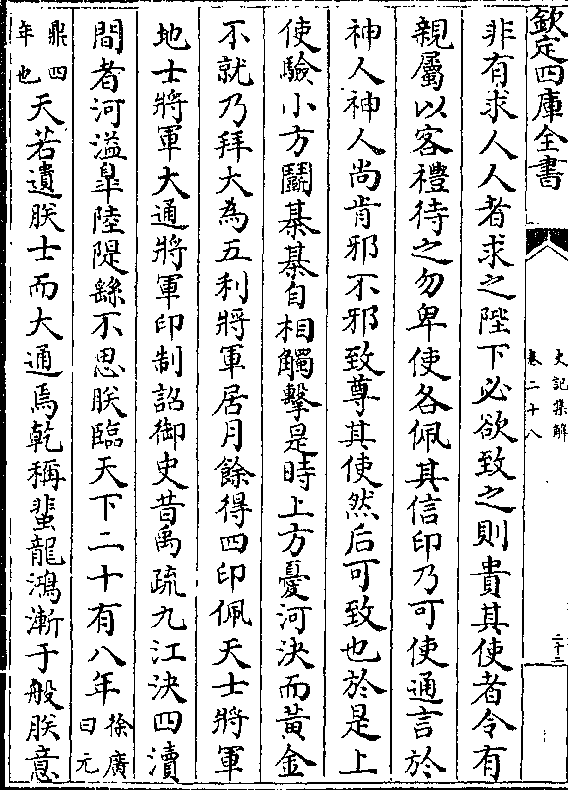 欽定四庫全書
史記集解
卷二十八
二十三
非有求人人者求之陛下必欲致之則貴其使者令有
親屬以客禮待之勿卑使各佩其信印乃可使通言於
神人神人尚肯邪不邪致尊其使然后可致也於是上
使驗小方鬭棊棊自相觸擊是時上方憂河決而黃金
不就乃拜大為五利將軍居月餘得四印佩天士將軍
地士將軍大通將軍印制詔御史昔禹疏九江決四瀆
間者河溢臯陸隄繇不息朕臨天下二十有八年徐廣曰元
鼎四年也天若遺朕士而大通焉乾稱蜚龍鴻漸于般朕意